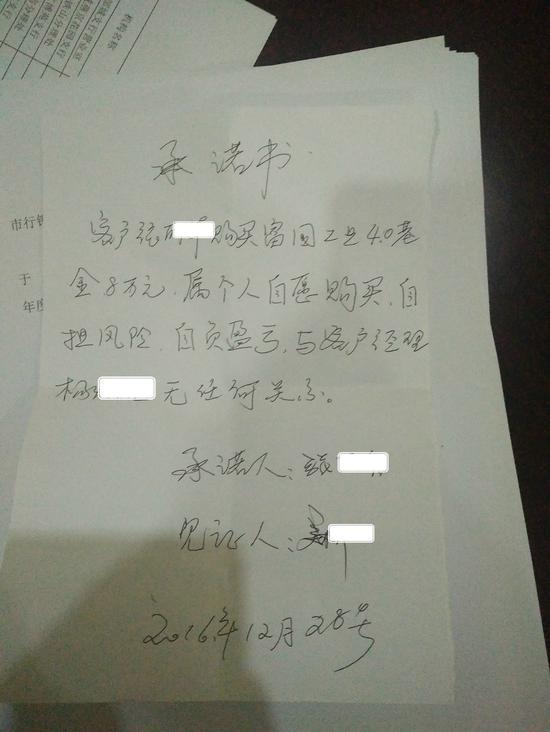 机构名称
市行
于
承诺书
客户张 购买富国工业4.0基
金8万元.属个人自愿购买,自
担风险,自负盈亏,与客户经理
杨 无任何关系。
承诺人:张
见证人:
2016年12月28号